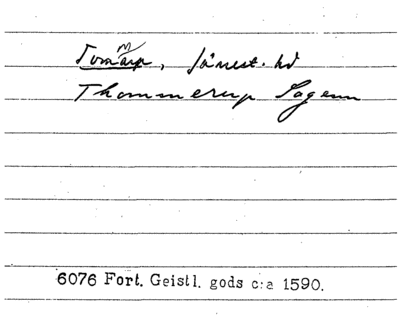 Tommarp, Järrest. hd
Thommerup Sogenn
6076 Fort. Geistl. gods c:a 1590.